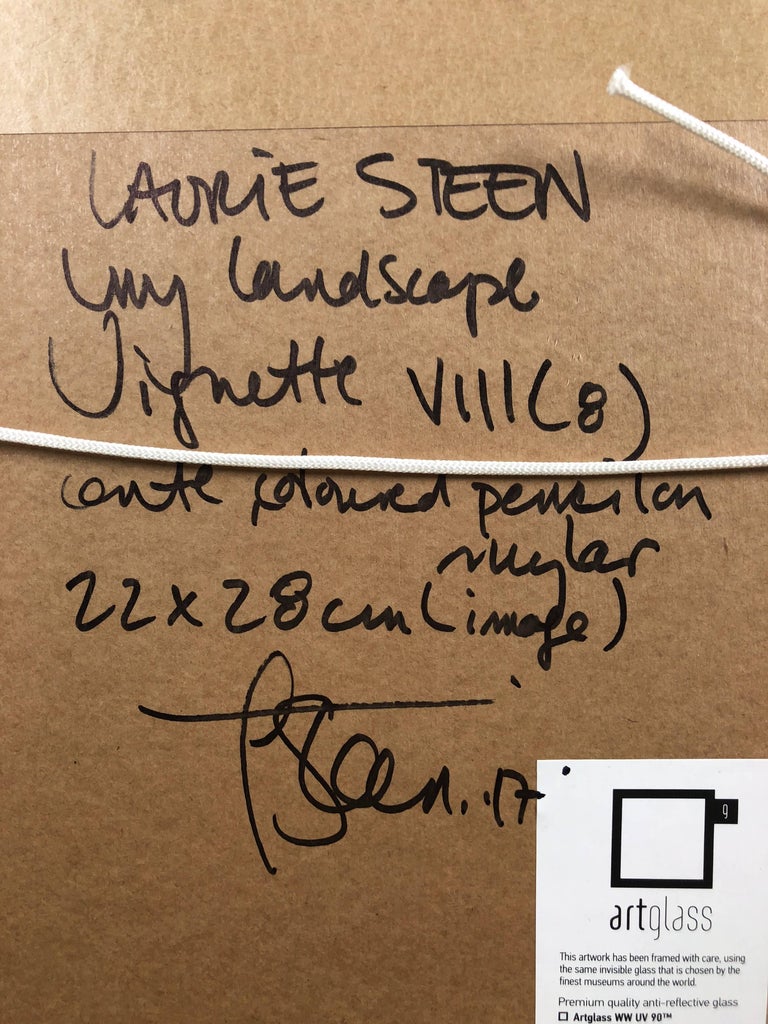 LAURIE STEEN
(my landscape
Vignette VIII (8)
conte, coloured pencil on
mylar
22 x 28 cm (image)
Steen. '17
9
artglass
This artwork has been framed with care, using
the same invisible glass that is chosen by the
finest museums around the world.
Premium quality anti-reflective glass
Artglass WW UV 90™